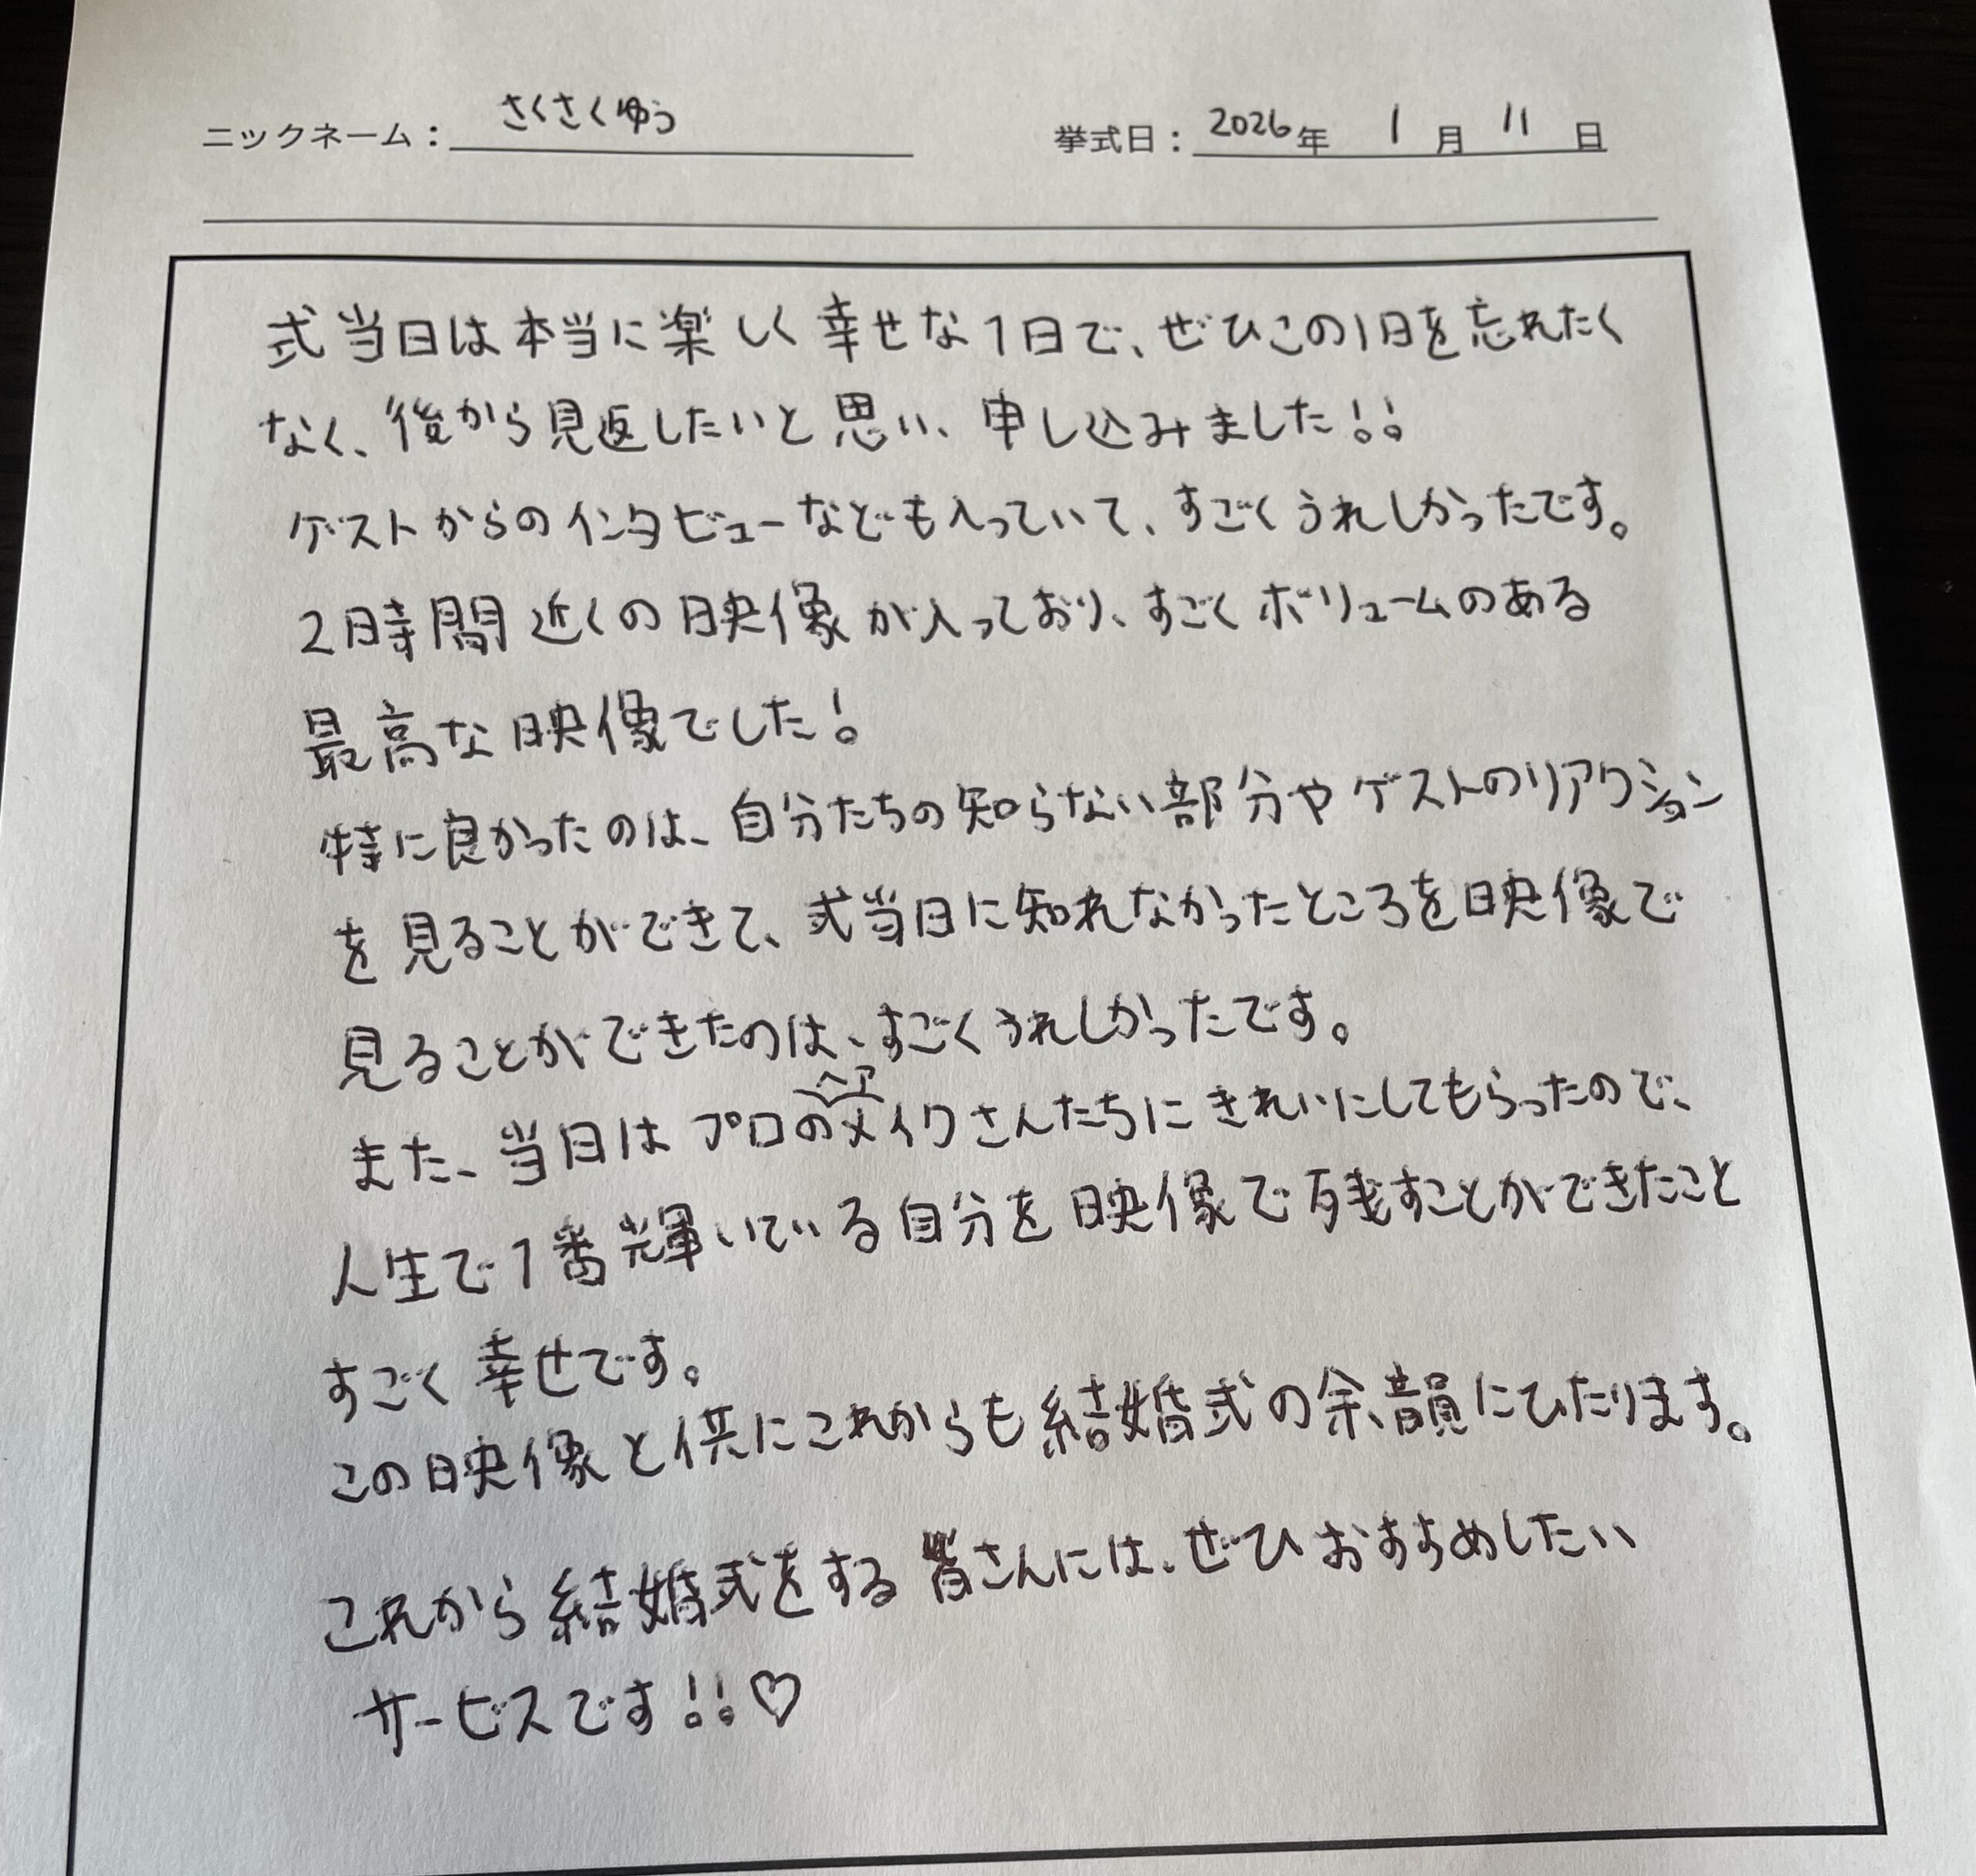 ニックネーム：さくさくゆう　挙式日：2026年 1月 11日
式当日は本当に楽しく幸せな1日で、ぜひこの1日を忘れたく
なく、後から見返したいと思い、申し込みました！！
ゲストからのインタビューなども入っていて、すごくうれしかったです。
2時間近くの映像が入っており、すごくボリュームのある
最高な映像でした！
特に良かったのは、自分たちの知らない部分やゲストのリアクション
を見ることができて、式当日に知れなかったところを映像で
見ることができたのは、すごくうれしかったです。
また、当日はプロのヘアメイクさんたちにきれいにしてもらったので、
人生で1番輝いている自分を映像で残すことができたこと
すごく幸せです。
この映像と供にこれからも結婚式の余韻にひたります。
これから結婚式をする皆さんには、ぜひおすすめしたい
サービスです！！♡